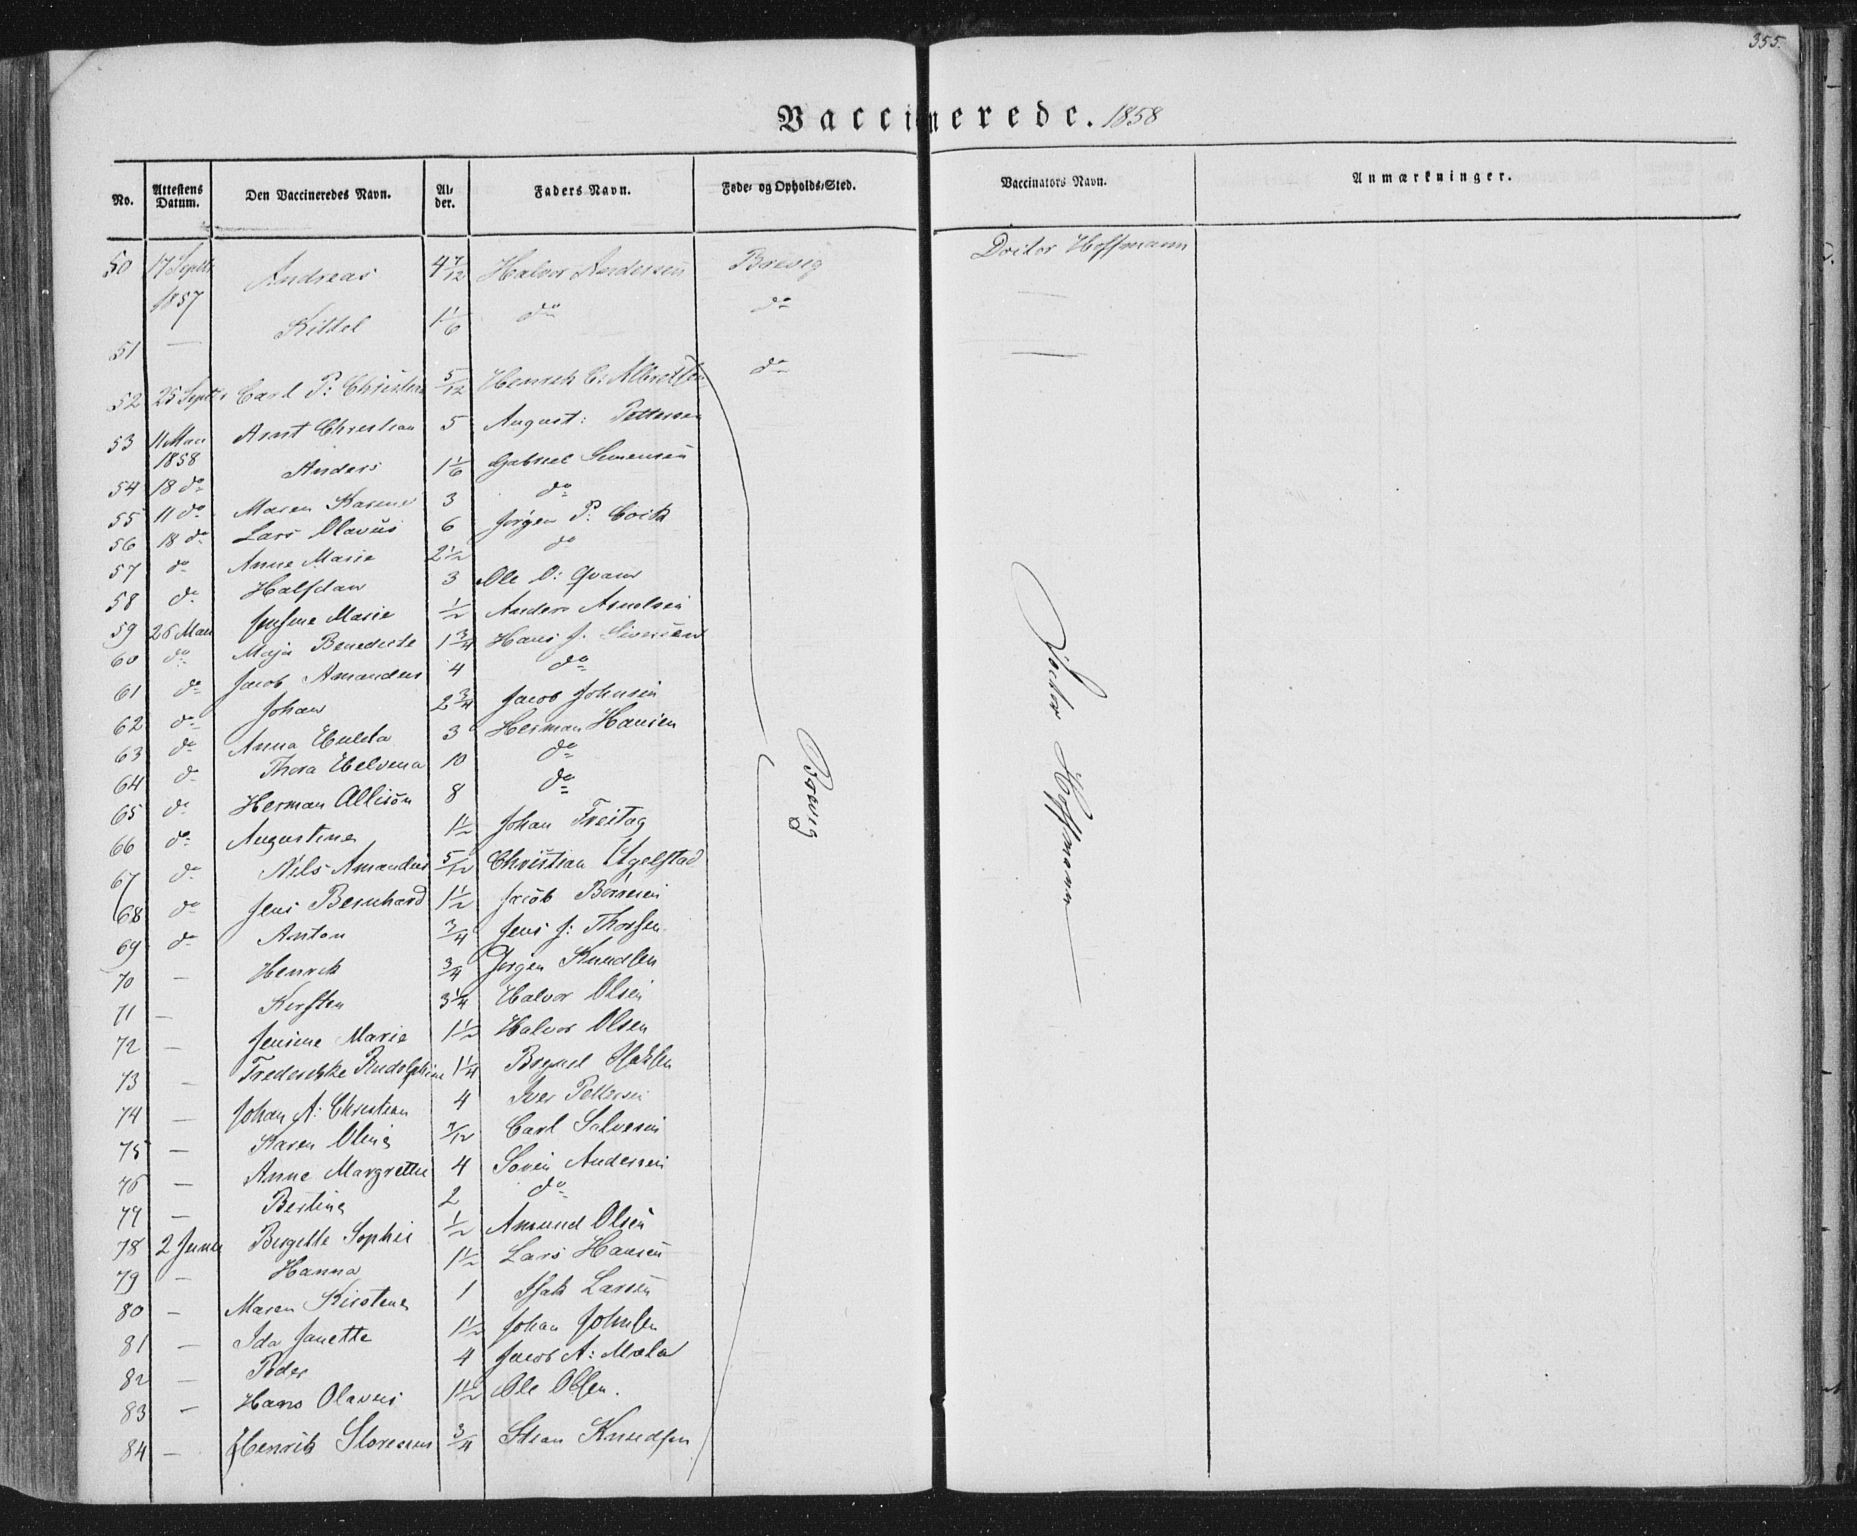 355.
Vaccinerede. 1858
No. Attestens Datum. Den Vaccineredes Navn. Alder. Faders Navn. Føde- og Opholds-Sted. Vaccinators Navn. Anmærkninger.
50 17 Septbr 1857 Andreas 4 7/12 Halvor Andersen Brevig Doctor Hoffmann
51 — Kittel 1 1/6 do do —
52 25 Septbr Carl P: Christian 5/12 Henrik C: Albretsen do —
53 11 Mai 1858 Arnt Christian 5 August: Pettersen
54 18 do Anders 1 1/6 Gabriel Simensen
55 11 do Maren Karine 3 do
56 18 do Lars Olavus 6 Jørgen P: Coick
57 do Anne Marie 2 1/2 do
58 do Halfdan 3 Ole O: Qvam
59 26 Mai Josefine Marie 1/2 Anders Arnolsen
60 do Maja Benedicte 1 3/4 Hans J. Siversen
61 do Jacob Amandus 4 do
62 do Johan 2 3/4 Jacob Johnsen
63 do Anna Hulda 3 Herman Hansen
64 do Thora Elvena 10 do
65 do Herman Allison 8 do
66 do Augustine 1 1/2 Johan Freitag
67 do Nils Amandus 5/12 Christian Agelstad
68 do Jens Bernhard 1 1/2 Jacob Børresen
69 do Anton 3/4 Jens J: Thorsen
70 — Henrik 3/4 Jørgen Knudsen
71 — Kirsten 3 1/4 Halvor Olsen
72 — Jensine Marie 1 1/2 Halvor Olsen
73 — Frederikke Rudolphine 1 1/4
74 — Johan A: Christian 4 Iver Pettersen
75 — Karen Oline 7/12 Carl Salvesen
76 — Anne Margrethe 4 Søren Andersen
77 — Bertine 2 do
78 2 Juni Birgitte Sophie 1/2 Amund Olsen
79 — Hanna 1 1/2 Lars Hansen
80 — Maren Kirstine 1 Isak Larsen
81 — Ida Janette 1 1/2 Johan Johnsen
82 — Peder 4 Jacob A: Mæla
83 — Hans Olavus 1 1/2 Ole Olsen.
84 — Henrik Storesund 3/4 Stian Knudsen
Brevig
Doctor Hoffmann